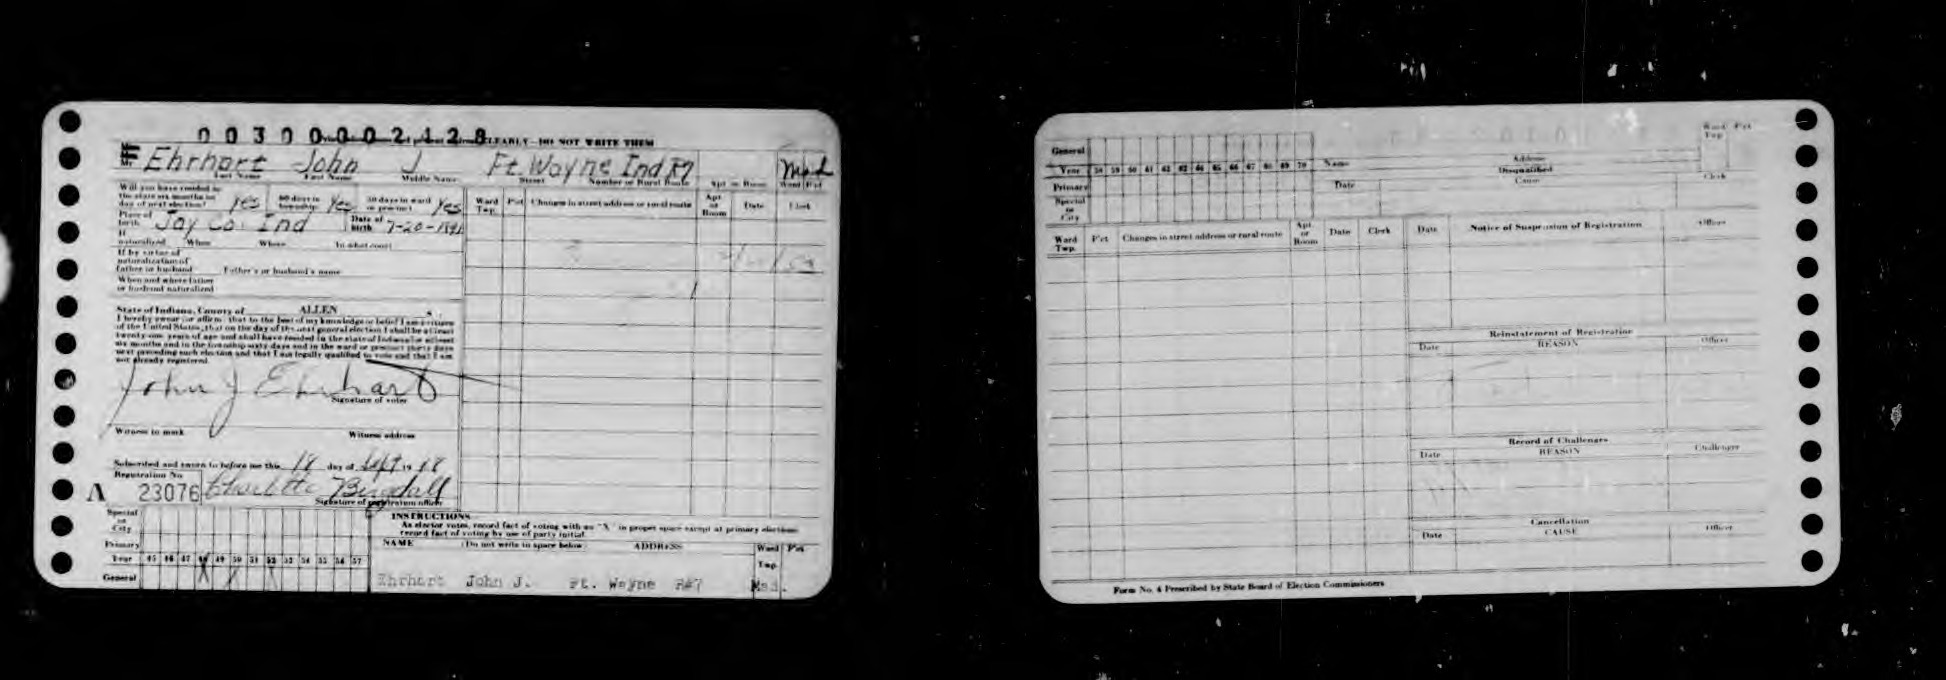 00300002428
CLEARLY—DO NOT WRITE THEM
Mr
Ehrhart John J Ft. Wayne Ind R7 Mad
Last Name First Name Middle Name Street Number or Rural Route Apt. or Room Ward Pct
Will you have resided in the state six months on day of next election? Yes 60 days in township? Yes 30 days in ward or precinct Yes
Ward Twp. Pct Changes in street address or rural route Apt. or Room Date Clerk
Place of birth Jay Co. Ind Date of birth 7-20-1891
If naturalized When Where In what court
If by virtue of naturalization of father or husband Father's or husband's name
When and where father or husband naturalized
State of Indiana, County of ALLEN
I hereby swear (or affirm) that to the best of my knowledge or belief I am a citizen
of the United States, that on the day of the next general election I shall be at least
twenty-one years of age and shall have resided in the state of Indiana for at least
six months and in the township sixty days and in the ward or precinct thirty days
next preceding such election and that I am legally qualified to vote and that I am
not already registered.
John J Ehrhart
Signature of voter
Witness to mark Witness address
Subscribed and sworn to before me this 18 day of Sept 19
Registration No.
A 23076 Charlotte
Signature of registration officer
Special or City
Primary
Year 45 46 47 48 49 50 51 52 53 54 55 56 57
General X
INSTRUCTIONS
As elector votes, record fact of voting with an "X" in proper space except at primary elections
record fact of voting by use of party initial.
NAME (Do not write in space below) ADDRESS Ward Twp. Pct
Ehrhart John J. Ft. Wayne R#7 Mad.
General
Year 58 59 60 61 62 63 64 65 66 67 68 69 70 Name Address Ward Twp. Pct
Primary
Special or City
Disqualified
Date Cause Clerk
Ward Twp. Pct Changes in street address or rural route Apt. or Room Date Clerk
Date Notice of Suspension of Registration Officer
Reinstatement of Registration
Date REASON Officer
Record of Challenges
Date REASON Challenger
Cancellation
Date CAUSE Officer
Form No. 4 Prescribed by State Board of Election Commissioners